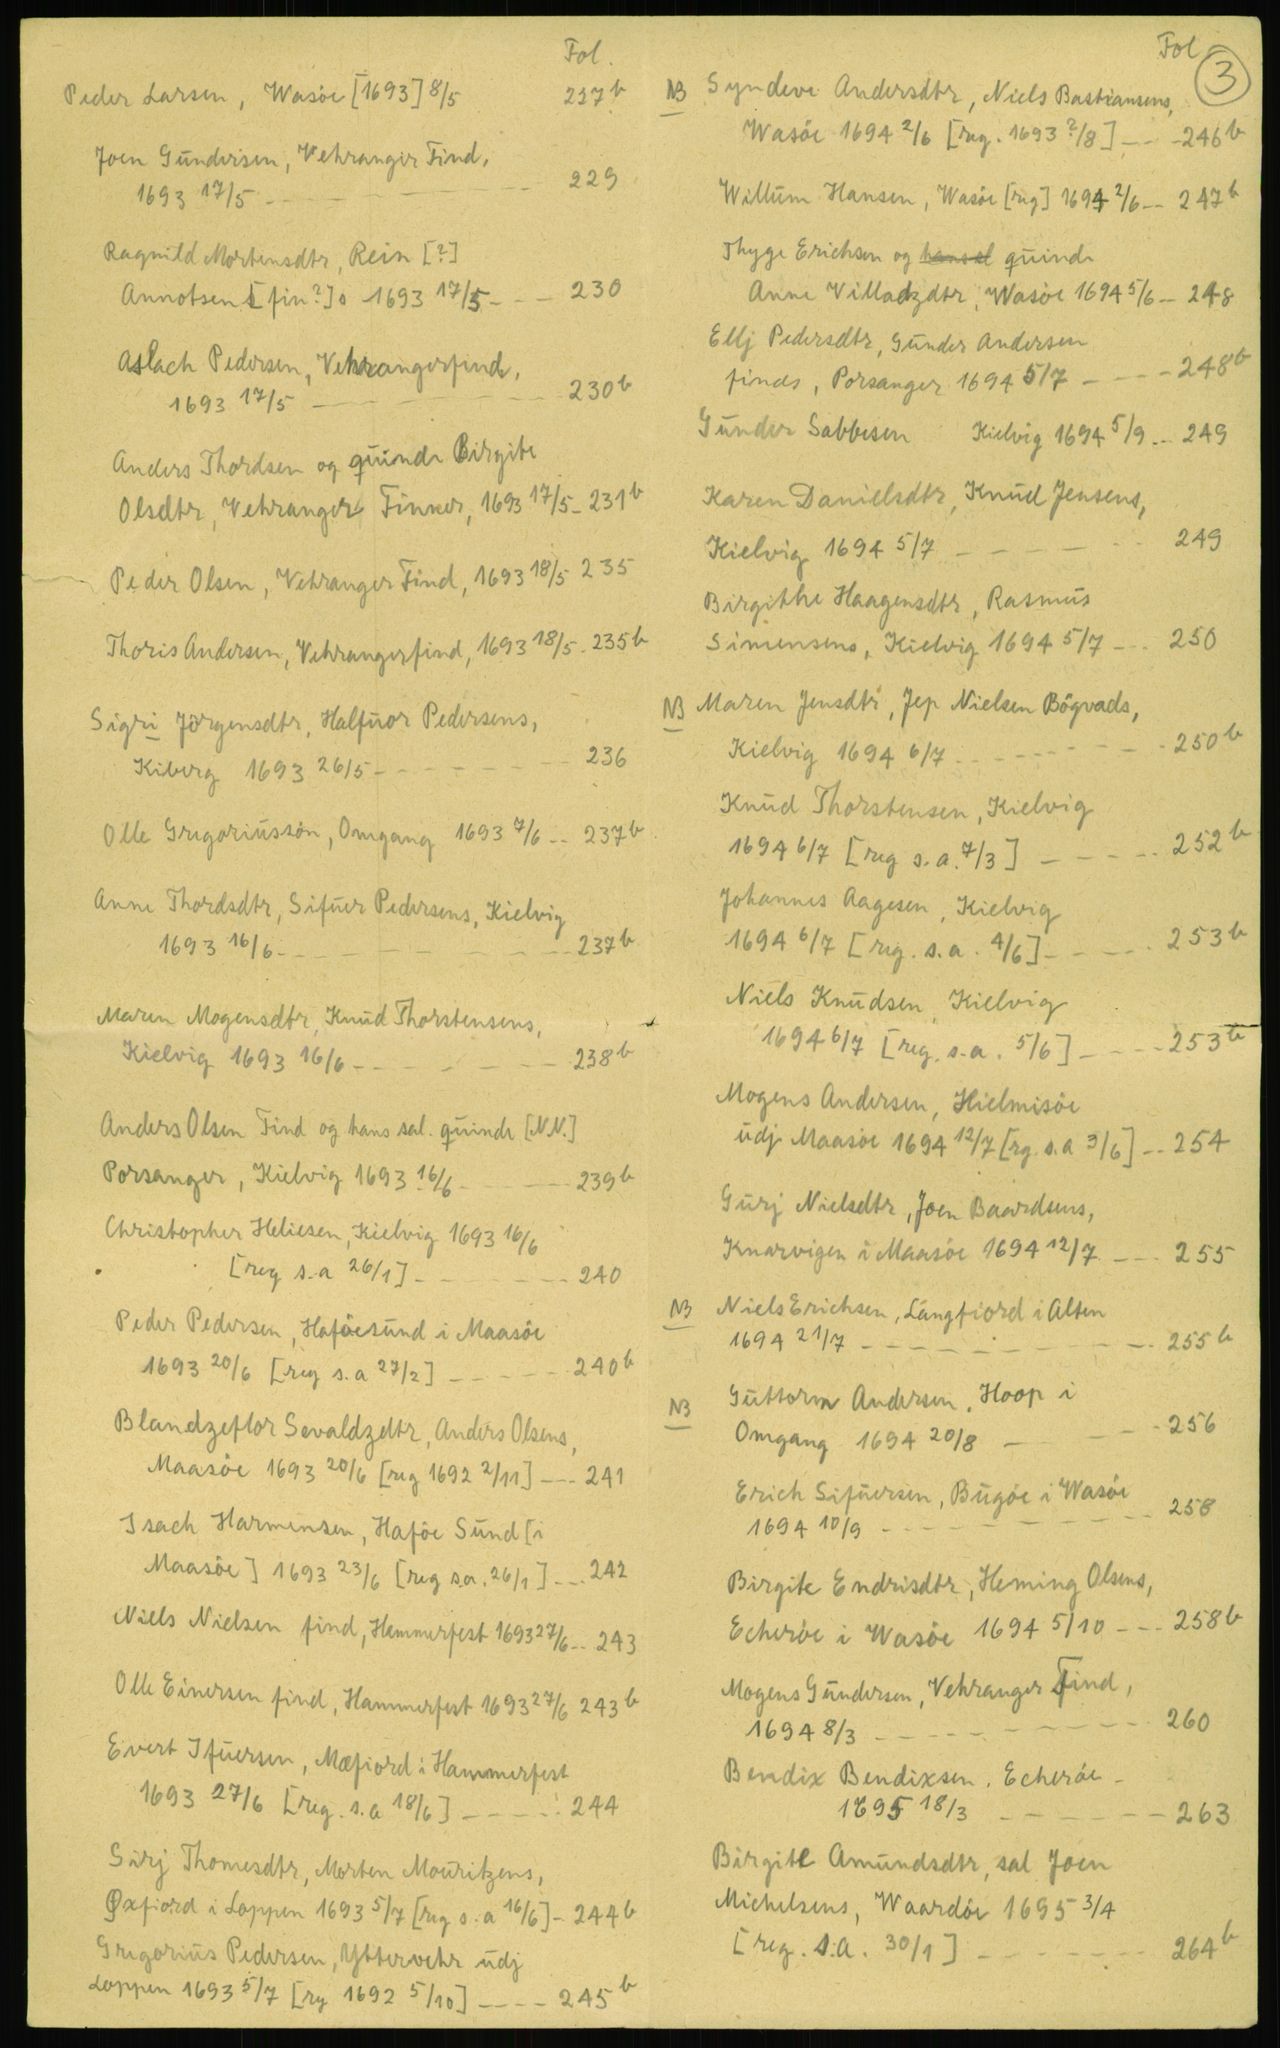 Fol.
Peder Larsen, Wasöe [1693] 8/5 227b
Joen Gundersen, Vehranger Find,
1693 17/5 - - - 229
Ragnild Mortensdtr, Rein [?]
Annotsen[fin?]s 1693 17/5 - - - 230
Aslach Pedersen, Vehrangerfind,
1693 17/5 - - - 230b
Anders Thordsen og quinde Birgite
Olsdtr, Vehranger Finner, 1693 17/5 - 231b
Peder Olsen, Vehranger Find, 1693 18/5 235
Thoris Andersen, Vehrangerfind, 1693 18/5 - 235b
Sigri Jörgensdtr, Halfuor Pedersens,
Kiberg 1693 26/5 - - - 236
Olle Gregoriussön, Omgang 1693 7/6 - - 237b
Anne Thordsdtr, Sifuer Pedersens, Kielvig
1693 16/6 - - - 237b
Maren Mogensdtr, Knud Thorstensens,
Kielvig 1693 16/6 - - - 238b
Anders Olsen Find og hans sal. quinde [N.N.]
Porsanger, Kielvig 1693 16/6 - - - 239b
Christopher Heliesen, Kielvig 1693 16/6
[reg s.a 26/1] - - - 240
Peder Pedersen, Haföesund i Maasöe
1693 20/6 [reg s.a 27/2] - - - 240b
Blandzeflor Sevaldzdtr, Anders Olsens,
Maasöe 1693 20/6 [reg 1692 2/11] - - - 241
Isach Harmensen, Haföe Sund [i
Maasöe] 1693 23/6 [reg s.a. 26/1] - - - 242
Niels Nielsen find, Hammerfest 1693 27/6 - - 243
Olle Einersen find, Hammerfest 1693 27/6 243b
Evert Ifuersen, Mefiord i Hammerfest
1693 27/6 [reg. s.a 18/6] - - - 244
Sirj Thomesdtr, Morten Mouritzens,
Øxfiord i Loppen 1693 5/7 [reg s.a 16/6] - 244b
Gregorius Pedersen, Yttervehr udj
Loppen 1693 5/7 [reg 1692 5/10] - - - 245b
Fol
3
NB Syndeve Andersdtr, Niels Bastiansens,
Wasöe 1694 2/6 [reg. 1693 ?/8] - - - 246b
Willum Hansen, Wasöe [reg] 1694 2/6 - - 247b
Thyge Erichsen og quinde
Anne Villadzdtr, Wasöe 1694 5/6 - 248
Ellj Pedersdtr, Gunder Andersen
finds, Porsanger 1694 5/7 - - - 248b
Gunder Sabbesen Kielvig 1694 5/9 - - 249
Karen Danielsdtr, Knud Jensens,
Kielvig 1694 5/7 - - - 249
Birgithe Haagensdtr, Rasmus
Simensens, Kielvig 1694 5/7 - - - 250
NB Maren Jensdtr, Jep Nielsen Bögvads,
Kielvig 1694 6/7 - - - 250b
Knud Thorstensen, Kielvig
1694 6/7 [reg s.a. 7/3] - - - 252b
Johannes Aagesen, Kielvig
1694 6/7 [reg. s.a. 4/6] - - - 253b
Niels Knudsen, Kielvig
1694 6/7 [reg. s.a. 5/6] - - - 253b
Mogens Andersen, Hielmisöe
udj Maasöe 1694 12/7 [rg. s.a 3/6] - - 254
Gurj Nielsdtr, Joen Baardsens,
Knarvigen i Maasöe 1694 12/7 - - - 255
NB Niels Erichsen, Langfiord i Alten
1694 21/7 - - - 255b
NB Guttorm Andersen, Hoop i
Omgang 1694 20/8 - - - 256
Erich Sifuersen, Bugöe i Wasöe
1694 10/9 - - - 258
Birgite Endrisdtr, Heming Olsens,
Echeröe i Wasöe 1694 5/10 - - - 258b
Mogens Gundersen, Vehranger Find,
1694 8/3 - - - 260
Bendix Bendixsen, Echeröe -
1695 18/3 - - - 263
Birgite Amundsdtr, sal Joen
Michelsens, Waardöe 1695 3/4
[reg. s.a. 30/1] - - - 264b